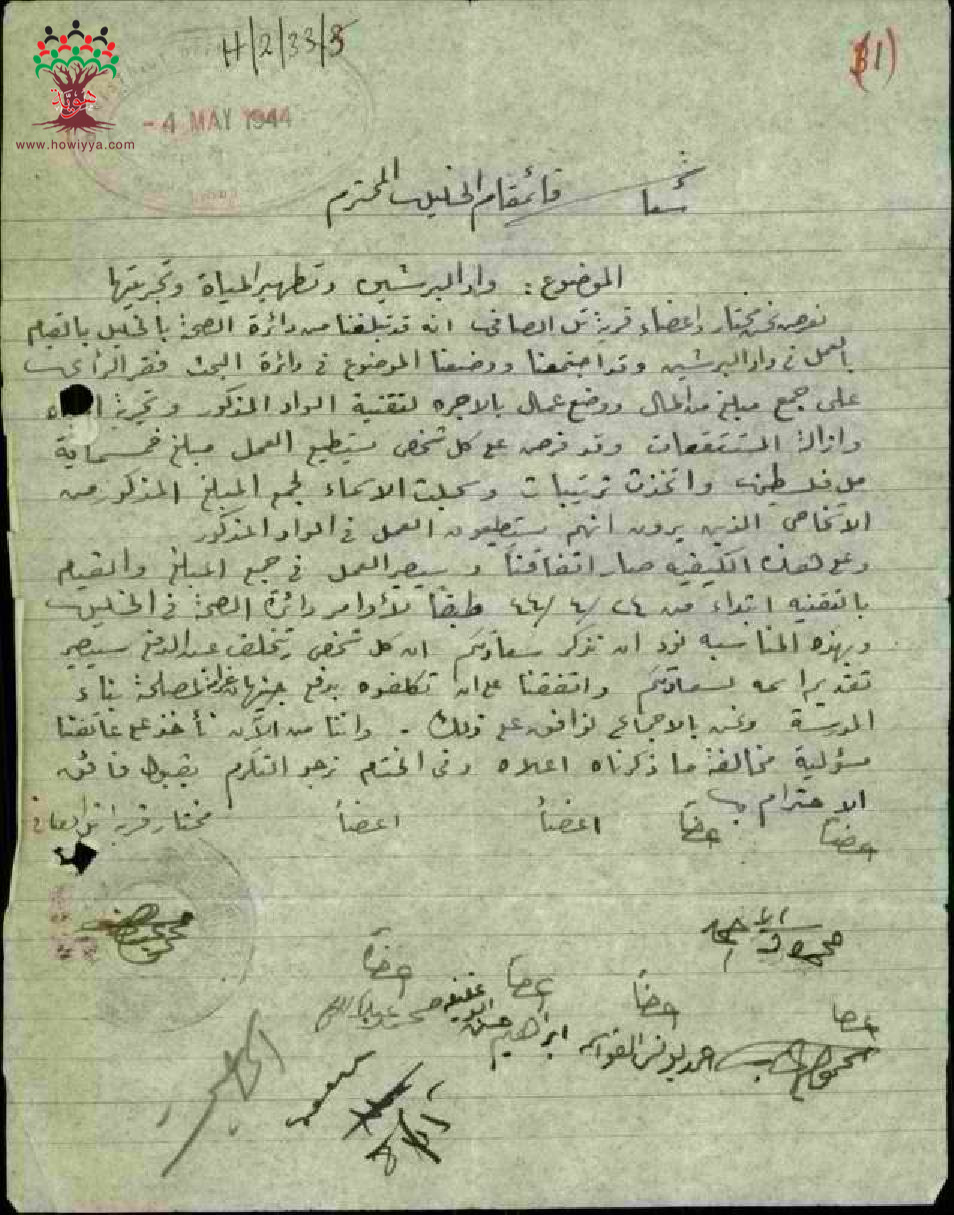 H/2/33/3
(31)
هوية
- 4 MAY 1944
www.howiyya.com
قائمقام الخليل المحترم
الموضوع: واد البرشين وتطهير المياة وتجريتها
نعرض نحن مختار واعضاء قرية تل الصافي انه قد تبلغنا من دائرة الصحة بالخليل بالقيام
بالعمل في واد البرشين وقد اجتمعنا ووضعنا الموضوع في دائرة البحث فقر الرأي
على جمع مبلغ من المال ووضع عمال بالاجره لتقنية الواد المذكور وتجرية
وازالة المستنقعات وقد فرض على كل شخص يستطيع العمل مبلغ خمسماية
مل فلسطيني واتخذت ترتيبات وسجلت الاسماء لجمع المبلغ المذكور من
الاشخاص الذين يرون انهم يستطيعون العمل في الواد المذكور
وعلى هذه الكيفيه صار اتفاقنا وسيصير العمل في جمع المبلغ والقيام
بالتقنيه ابتداء من ٢٤/٤/٤٤ طبقاً لأوامر دائرة الصحة في الخليل
وبهذه المناسبه نود ان نذكر سعادتكم ان كل شخص يتخلف عن الدفع سيصير
تقديم اسمه لسعادتكم واتفقنا على ان تكلفوه بدفع جنيهان لمصلحة بناء
المدرسة ونحن بالاجماع نوافق على ذلك . واننا من الآن نأخذ على عاتقنا
مسؤلية مخالفة ما ذكرناه اعلاه وفي الختام نرجو التكرم بقبول فائق
الاحترام
عضاً عضاً اعضاً اعضاً مختار قرية تل الصافي
محمود
عضا عضاً عضاً عضاً
احمد يونس ابراهيم حسن